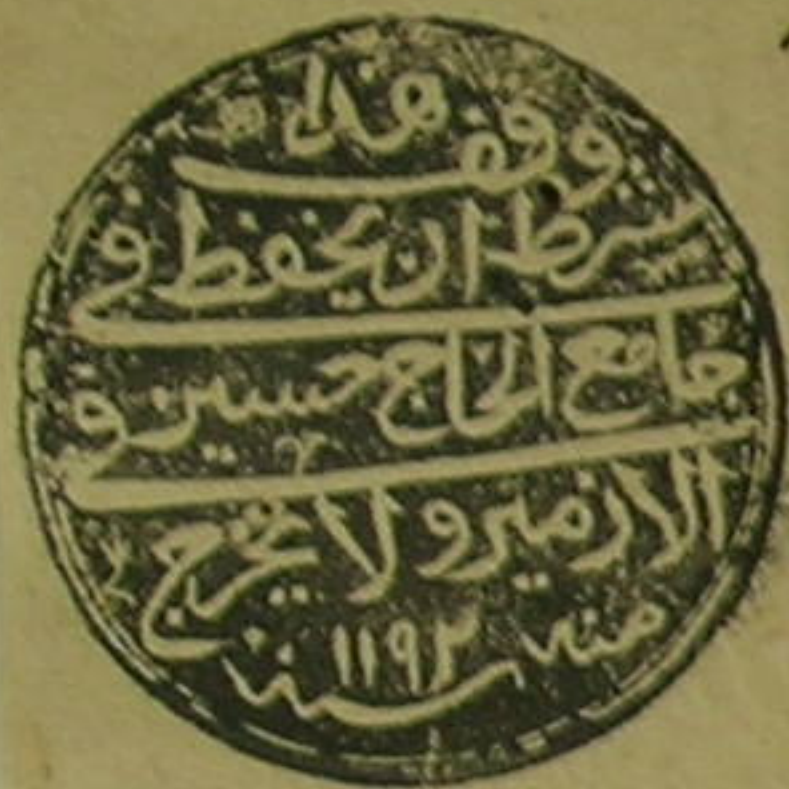 وقف هذا
شرط ان يحفظ في
جامع الحاج حسين في
الازمير ولا يخرج
منه سنة ١١٩٢